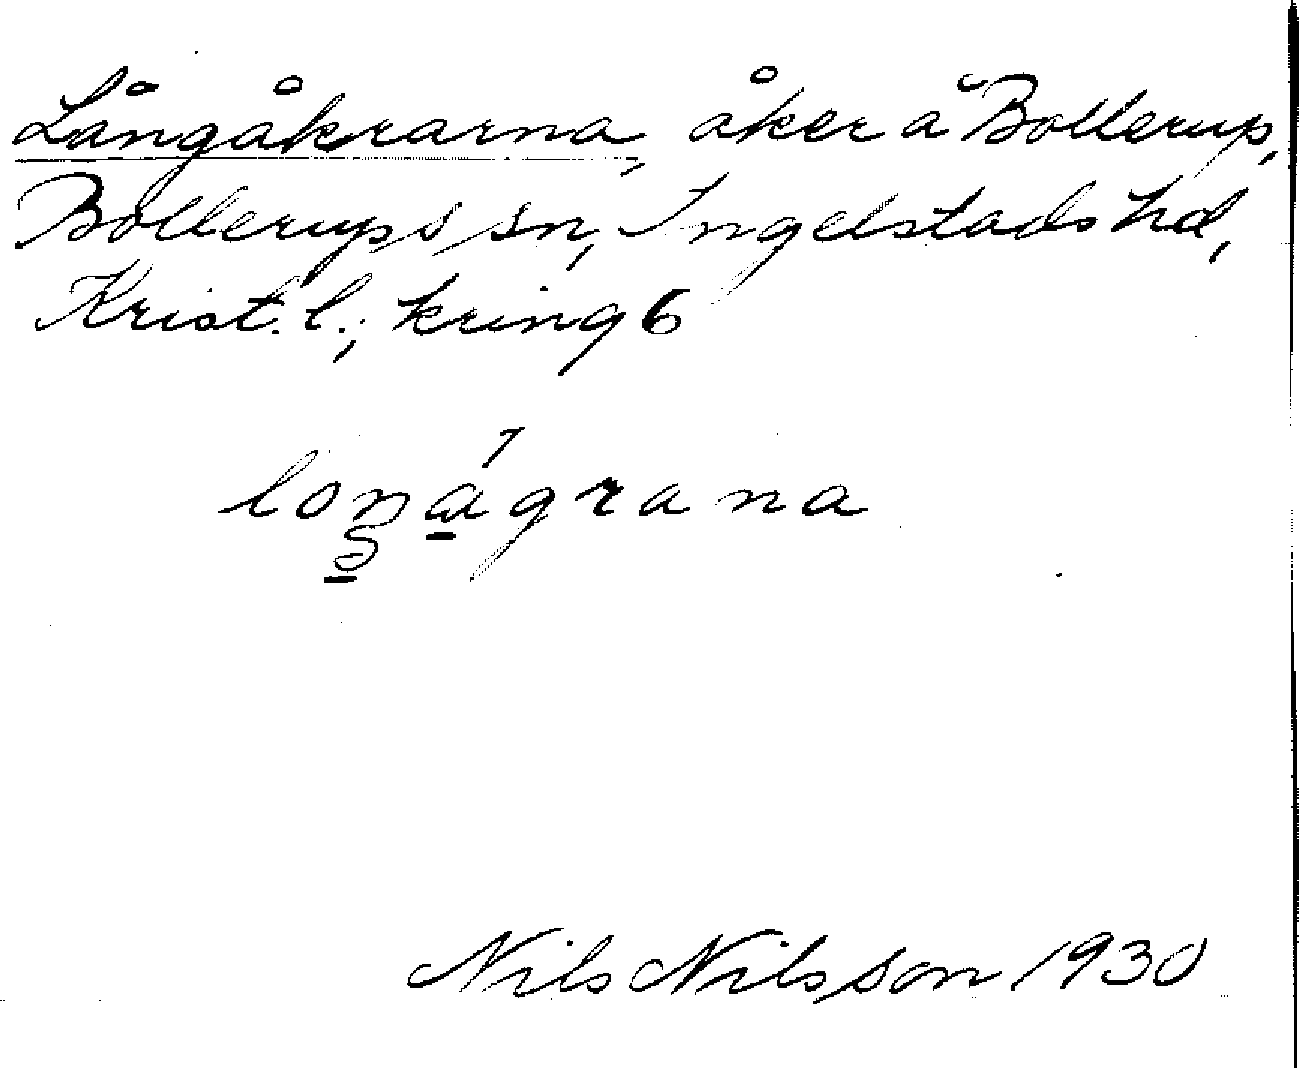 Långåkrarna, åker å Bollerup,
Bollerups sn, Ingelstads hd,
Krist. l.; kring 6
Nils Nilsson 1930